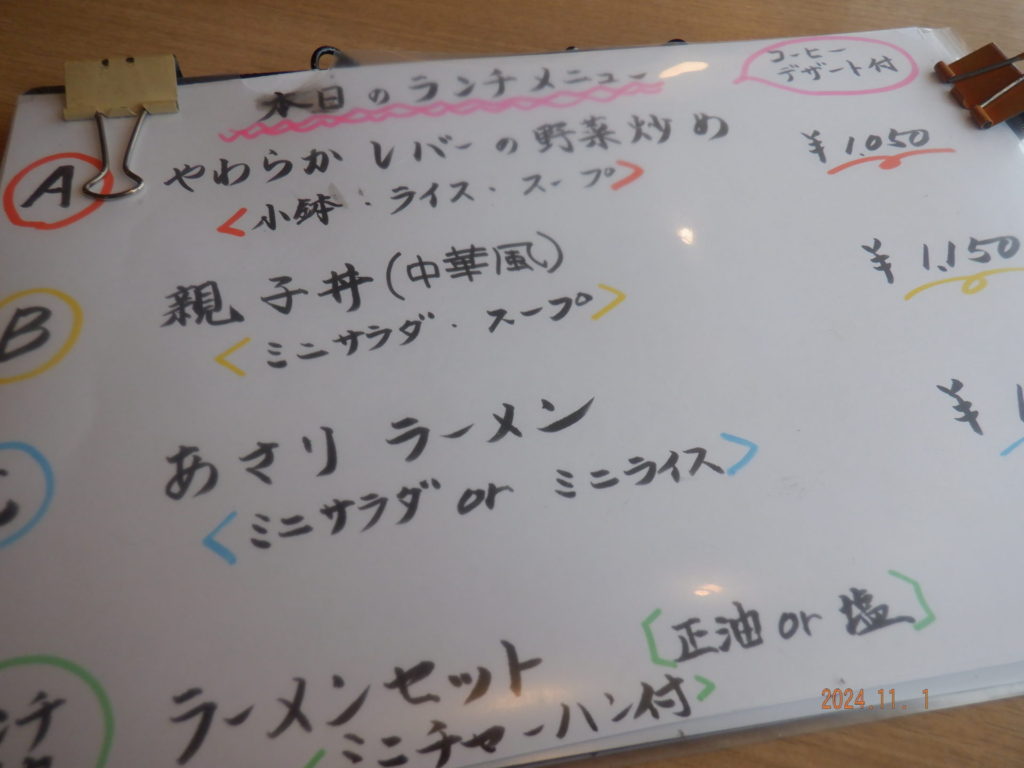 本日のランチメニュー
コーヒー
デザート付
A やわらかレバーの野菜炒め ¥1.050
<小鉢・ライス・スープ>
B 親子丼(中華風) ¥1.150
<ミニサラダ・スープ>
あさりラーメン ¥1
<ミニサラダ or ミニライス>
ラーメンセット [正油 or 塩]
<ミニチャーハン付>
2024.11. 1